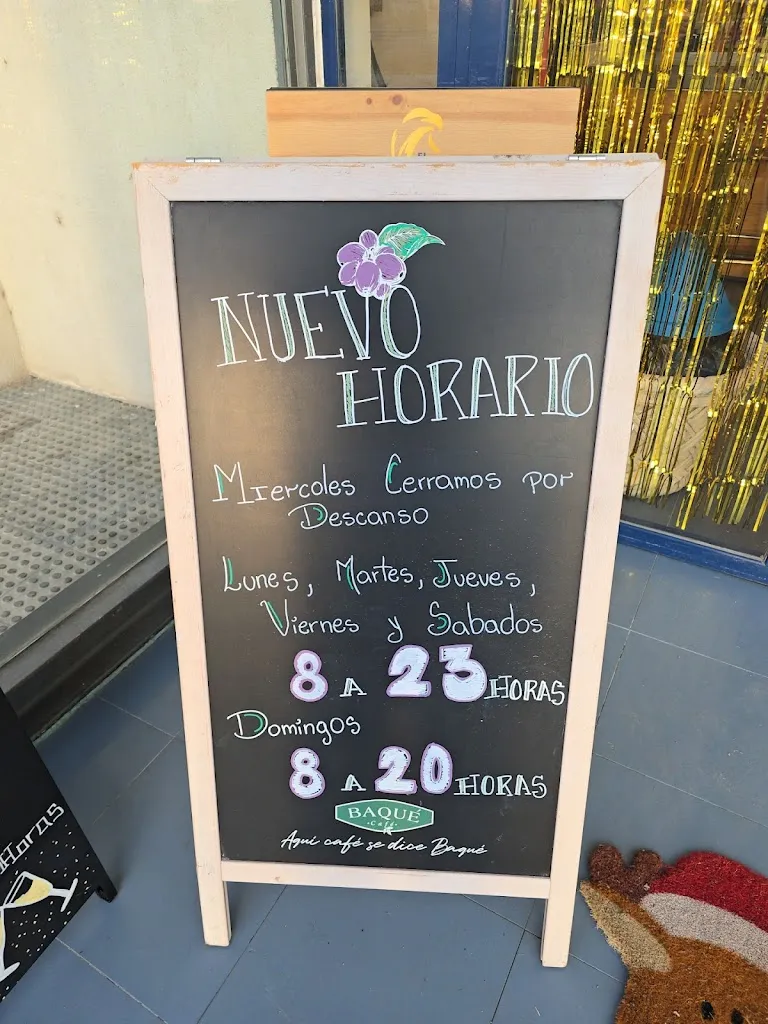 NUEVO
HORARIO
Miercoles Cerramos por
Descanso
Lunes, Martes, Jueves,
Viernes y Sabados
8 A 23 HORAS
Domingos
8 A 20 HORAS
BAQUÉ
Café
Aquí café se dice Baqué
Horas